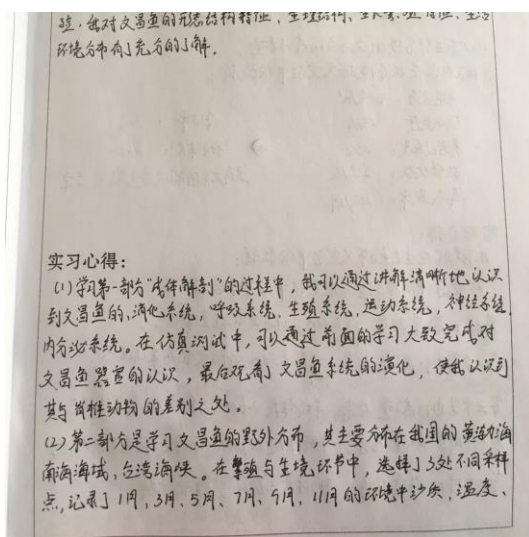 验,我对文昌鱼的形态结构特征,生理结构、生
环境分布有了充分的了解.
实习心得:
(1)学习第一部分"成体解剖"的过程中,我可以通过讲解清晰地认识
到文昌鱼的,消化系统,呼吸系统,生殖系统,运动系统,神经系统
内分泌系统。在仿真测试中,可以通过前面的学习大致完成对
文昌鱼器官的认识,最后观看了文昌鱼系统的演化,使我认识到
其与脊椎动物的差别之处。
(2)第二部分是学习文昌鱼的野外分布,其主要分布在我国的黄渤海
南海海域,台湾海峡。在繁殖与生境环节中,选择了3处不同采样
点,记录了1月,3月、5月、7月、9月、11月的环境中沙质,温度、